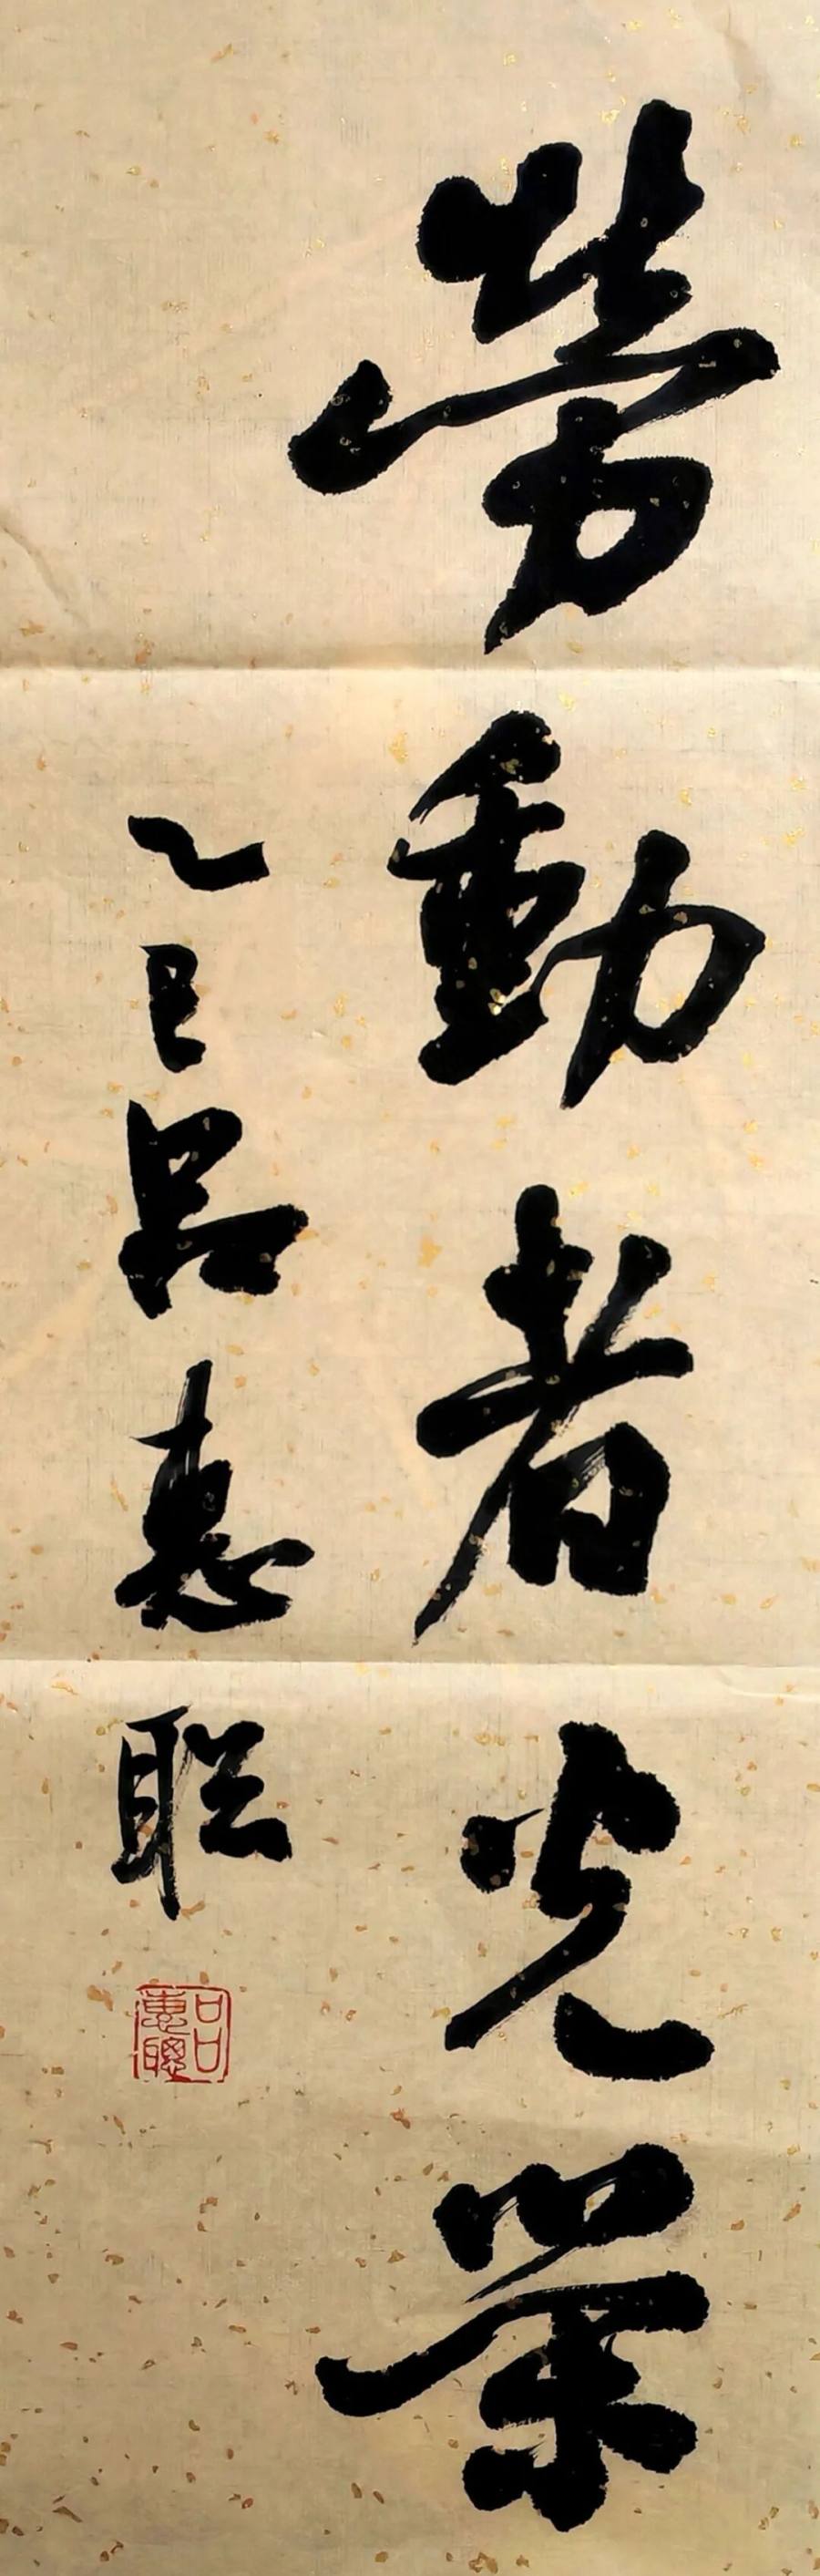 勞動者光荣
乙巳呂惠聪
呂惠聰